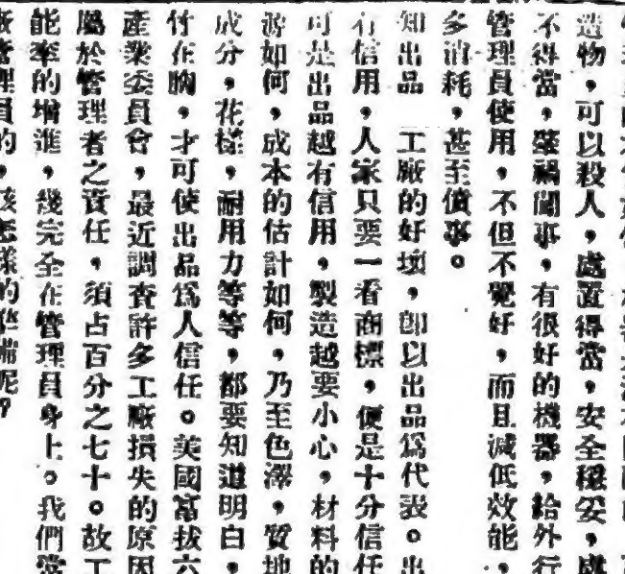 造物，可以殺人，處置得當，安全穩妥，處
不得當，肇禍闖事，有很好的機器，給外行
管理員使用，不但不覺好，而且減低效能，
多消耗，甚至僨事。
知出品　工廠的好壞，卽以出品爲代表。出
有信用，人家只要一看商標，便是十分信任
可是出品越有信用，製造越要小心，材料的
源如何，成本的估計如何，乃至色澤，質地
成分，花樣，耐用力等等，都要知道明白，
竹在胸，才可使出品爲人信任。美國富拔六
產業委員會，最近調查許多工廠損失的原因
屬於管理者之責任，須占百分之七十。故工
能率的增進，幾完全在管理員身上。我們當
廠管理員的，該怎樣的準備呢？